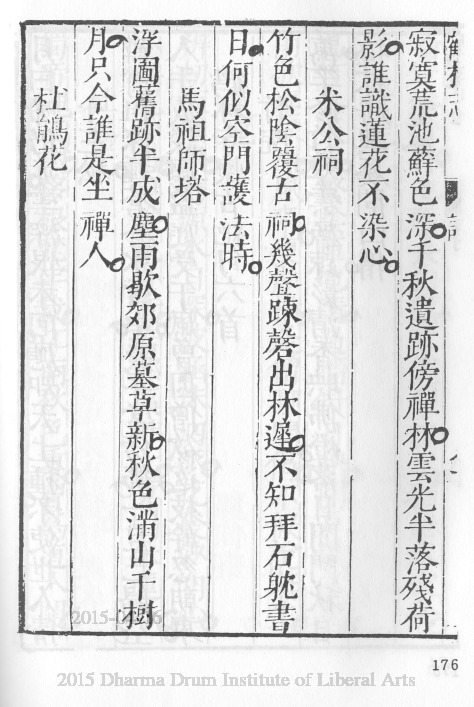 寂寞荒池蘚色深千秋遺跡傍禪林雲光半落殘荷
影誰識蓮花不染心
米公祠
竹色松陰覆古祠幾聲踈磬出林遲不知拜石躭書
日何似空門護法時
馬祖師塔
浮圖舊跡半成塵雨歇郊原墓草新秋色滿山千樹
月只今誰是坐禪人
杜鵑花
176
2015 Dharma Drum Institute of Liberal Arts